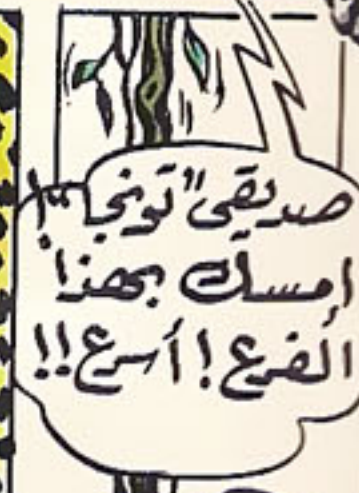 صديقى "تونجا"!
إمسك بهذا
الفرع! أسرع!!